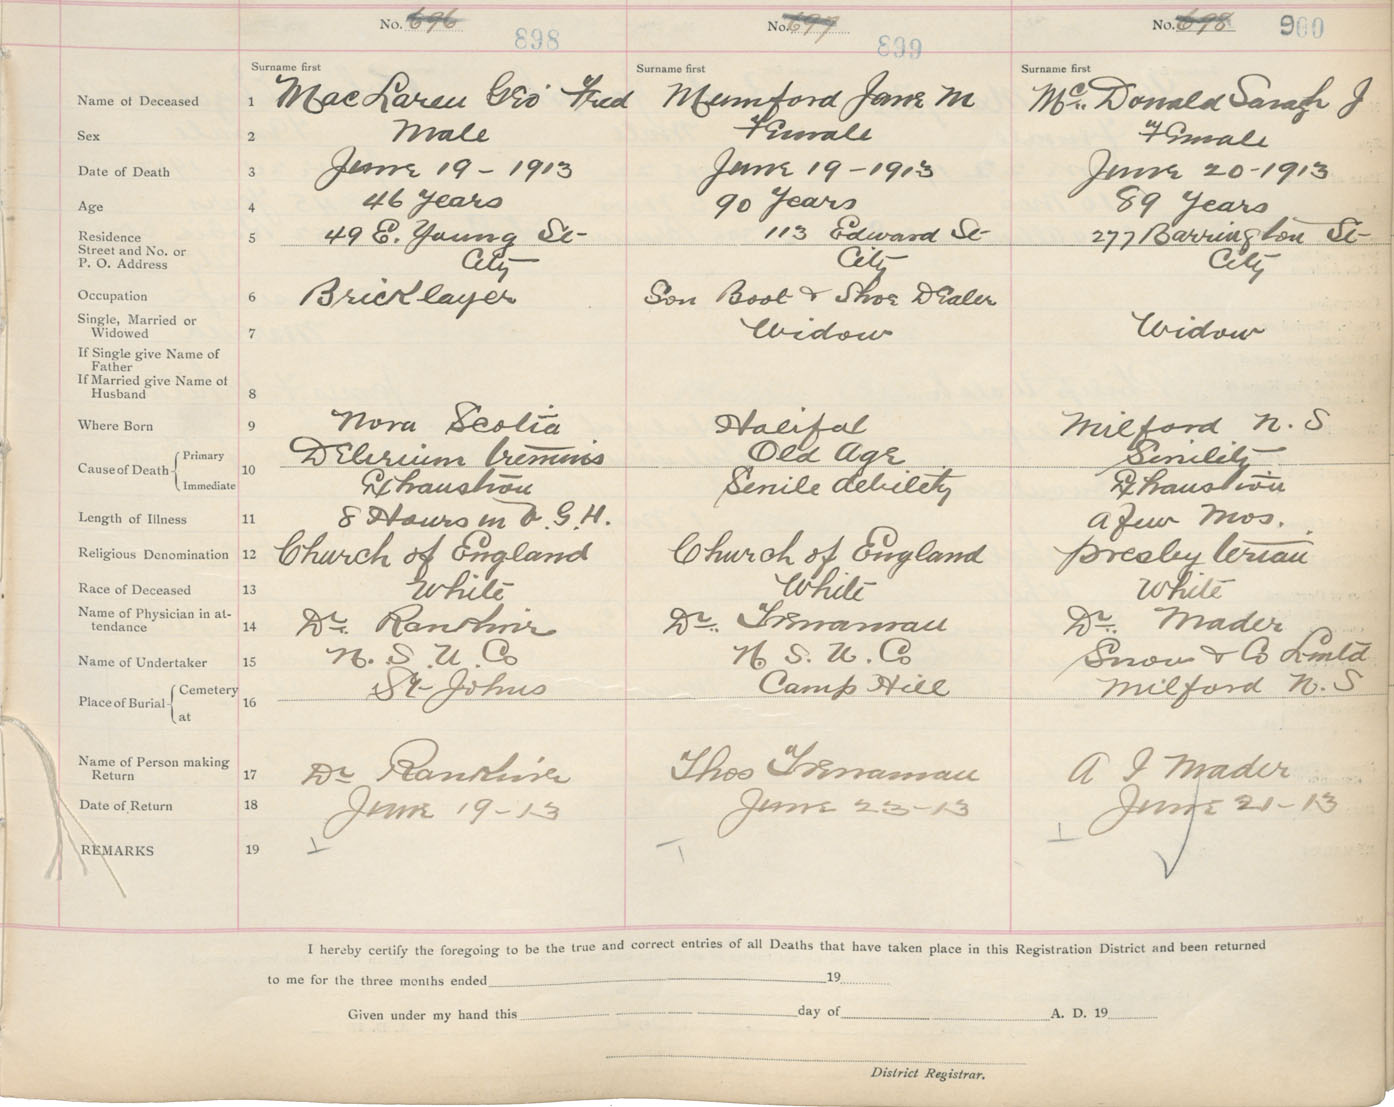 No. 696 898
No. 697 899
No. 698 900
Surname first
Surname first
Surname first
Name of Deceased 1 MacLaren Geo Fred Mumford Jane M McDonald Sarah J
Sex 2 Male Female Female
Date of Death 3 June 19 - 1913 June 19 - 1913 June 20 - 1913
Age 4 46 Years 90 Years 89 Years
Residence 5 49 E. Young St 113 Edward St 277 Barrington St
Street and No. or
P. O. Address City City City
Occupation 6 Bricklayer Son Boot & Shoe Dealer
Single, Married or
Widowed 7 Widow Widow
If Single give Name of
Father
If Married give Name of
Husband 8
Where Born 9 Nova Scotia Halifax Milford N. S
Cause of Death 10 Primary Delerium tremins Old Age Senility
Immediate Exhaustion Senile debility Exhaustion
Length of Illness 11 8 Hours in V. G. H. a few Mos.
Religious Denomination 12 Church of England Church of England Presbyterian
Race of Deceased 13 White White White
Name of Physician in at-
tendance 14 Dr. Rankine Dr. Trenaman Dr. Mader
Name of Undertaker 15 N. S. U. Co N. S. U. Co Snow & Co Lmtd
Place of Burial 16 Cemetery St Johns Camp Hill Milford N. S
at
Name of Person making
Return 17 Dr Rankine Thos Trenaman A I Mader
Date of Return 18 June 19 - 13 June 23 - 13 June 21 - 13
REMARKS 19
I hereby certify the foregoing to be the true and correct entries of all Deaths that have taken place in this Registration District and been returned
to me for the three months ended 19
Given under my hand this day of A. D. 19
District Registrar.